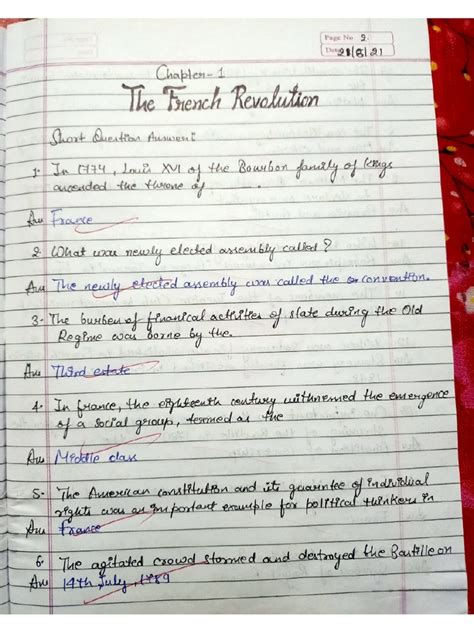 Page No. 2
Date 21/6/21
Chapter-1
The French Revolution
Short Question Answer:
1- In 1774, Louis XVI of the Bourbon family of kings
ascended the throne of .......
Ans France
2. What was newly elected assembly called?
Ans The newly elected assembly was called the convention.
3- The burben of finanical activities of state during the Old
Regime was borne by the.
Ans Third estate
4. In france, the eighteenth century withnemed the emergence
of a social group, termed as the
Ans Middle class
5- The American constitution and its guarantee of individual
rights was an important example for political thinkers in
Ans France
6. The agitated crowd stormed and destroyed the Bastille on
Ans 14th July, 1789